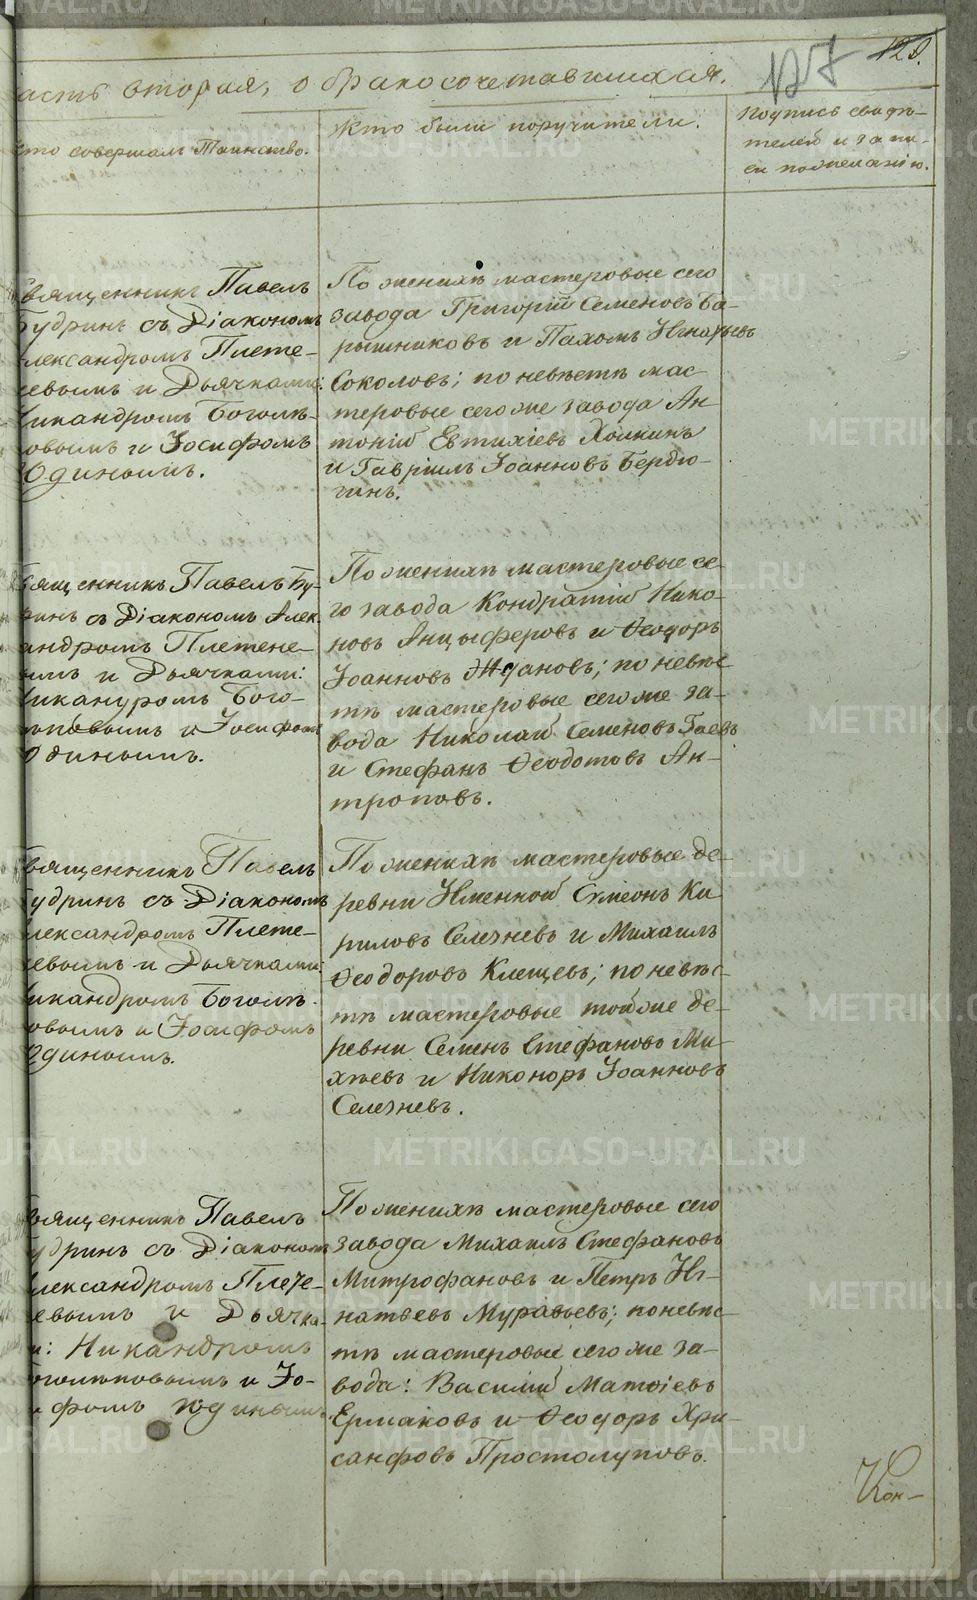 асть вторая, о бракосочетавшихся.
127
128.
то совершалъ Таинство.
Кто были поручители.
Подпись свидѣ-
телей и запи-
си по желанію.
вященникъ Павелъ
Будринъ съ Діакономъ
лександромъ Плете-
невымъ и Дьячками:
Никандромъ Боголѣ-
повымъ и Іосифомъ
Юдинымъ.
По женихѣ мастеровые сего
завода Григорій Семеновъ Ба-
рышниковъ и Пахомъ Игнатьевъ
Соколовъ; по невѣстѣ мас-
теровые сего же завода Ан-
тоній Евтихіевъ Холкинъ
и Гавріилъ Іоанновъ Бердю-
гинъ.
вященникъ Павелъ Бу-
дринъ съ Діакономъ Алек-
андромъ Плетене-
ымъ и Дьячками:
Никандромъ Бого-
лѣповымъ и Іосифомъ
Юдинымъ.
По женихѣ мастеровые се-
го завода Кондратій Нико-
новъ Анцыферовъ и Ѳеодоръ
Іоанновъ Ждановъ; по невѣс-
тѣ мастеровые сего же за-
вода Николай Семеновъ Гаевъ
и Стефанъ Ѳеодотовъ Ан-
троповъ.
вященникъ Павелъ
Будринъ съ Діакономъ
лександромъ Плете-
невымъ и Дьячками:
Никандромъ Боголѣ-
повымъ и Іосифомъ
Юдинымъ.
По женихѣ мастеровые де-
ревни Именной Симеонъ Ки-
риловъ Селезневъ и Михаилъ
Ѳеодоровъ Клещевъ; по невѣс-
тѣ мастеровые той же де-
ревни Семенъ Стефановъ Ми-
хѣевъ и Никоноръ Іоанновъ
Селезневъ.
вященникъ Павелъ
Будринъ съ Діакономъ
лександромъ Плете-
невымъ и Дьячка-
ми: Никандромъ
оголѣповымъ и Іо-
ифомъ Юдинымъ.
По женихѣ мастеровые сего
завода Михаилъ Стефановъ
Митрофановъ и Петръ Иг-
натьевъ Муравьевъ; по невѣс-
тѣ мастеровые сего же за-
вода: Василій Матѳіевъ
Ермаковъ и Ѳеодоръ Хри-
санфовъ Простолуповъ.
Кон-
METRIKI.GASO-URAL.RU